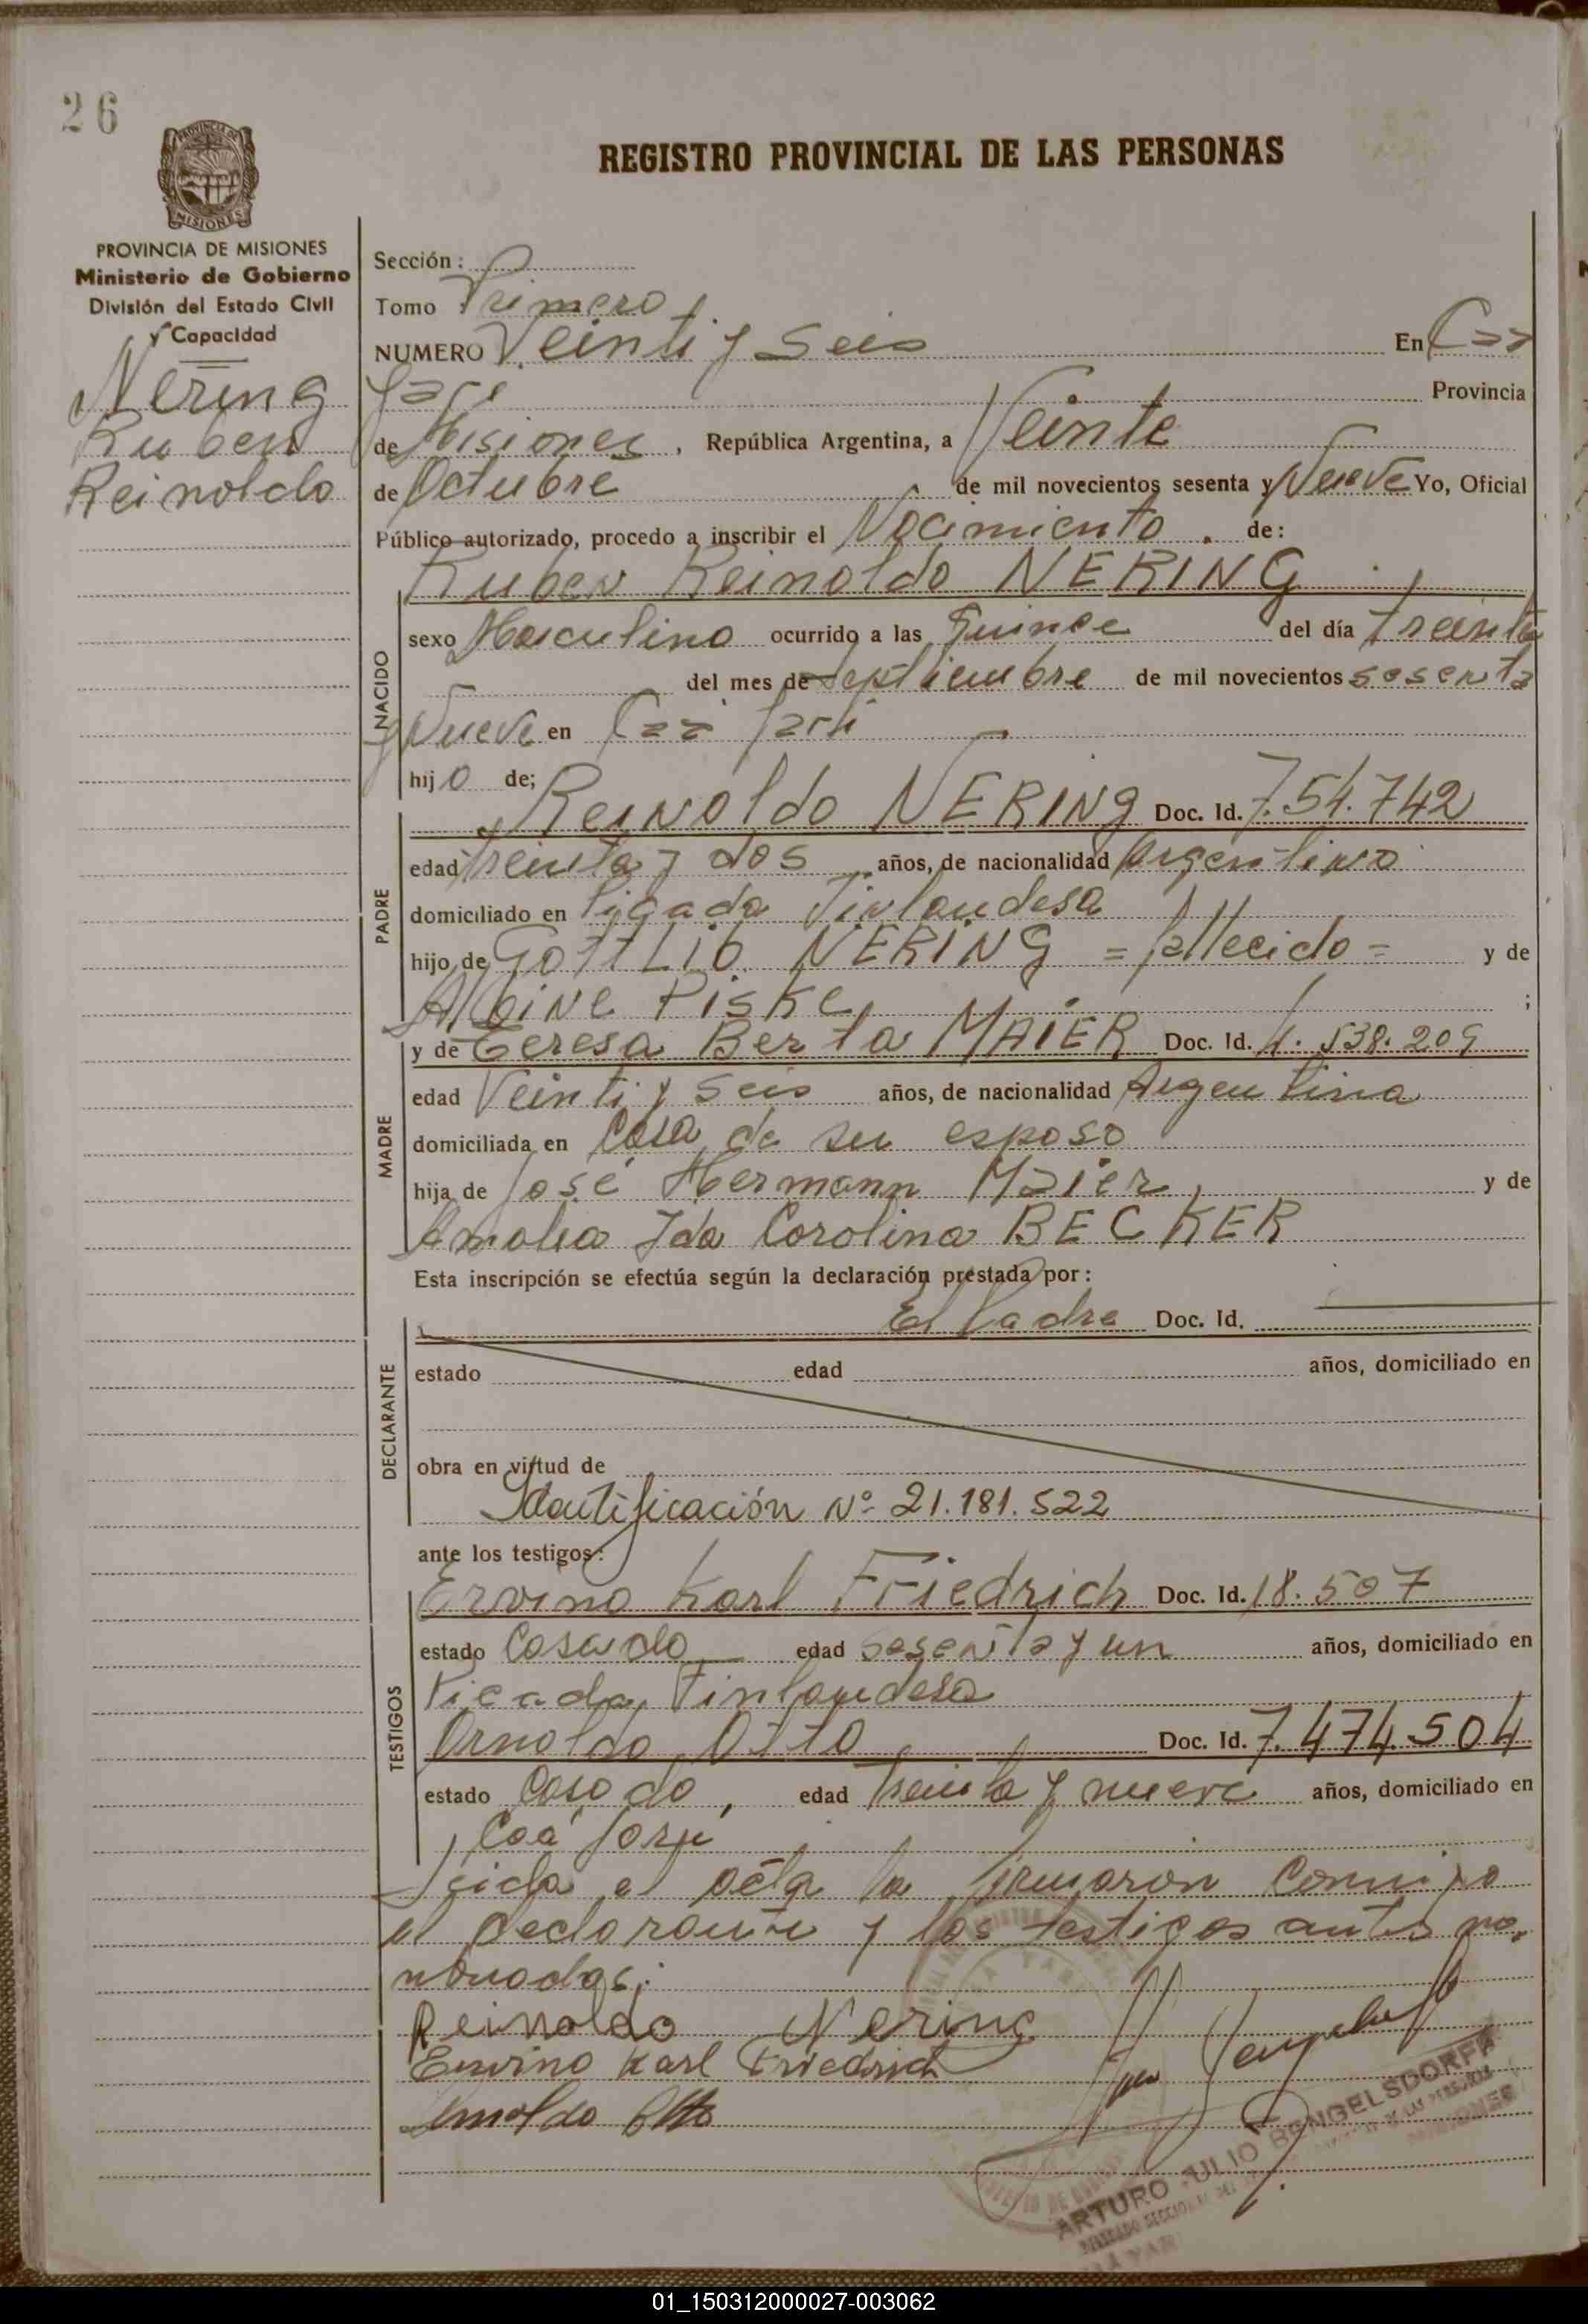 26
REGISTRO PROVINCIAL DE LAS PERSONAS
PROVINCIA DE MISIONES
Ministerio de Gobierno
División del Estado Civil
y Capacidad
Nering
Ruben
Reinoldo
Sección:
Tomo Primero
NUMERO Veinti y Seis En Caá
Yarí Provincia
de Misiones, República Argentina, a Veinte
de Octubre de mil novecientos sesenta y Nueve Yo, Oficial
Público autorizado, procedo a inscribir el Nacimiento. de:
Ruben Reinoldo NERING
NACIDO
sexo Masculino ocurrido a las Quince del día Treinta
del mes de Septiembre de mil novecientos sesenta
y Nueve en Caá Yarí
hijo de;
Reinoldo NERING Doc. Id. 7.54.742
PADRE
edad treinta y dos años, de nacionalidad Argentino
domiciliado en Picada Finlandesa
hijo de GOTTLIB NERING = fallecido = y de
Albine Piske, ;
MADRE
y de Teresa Berta MAIER Doc. Id. 4.538.209
edad Veinti y Seis años, de nacionalidad Argentina
domiciliada en Casa de su esposo
hija de José Hermann Maier, y de
Amalia Ida Carolina BECKER
Esta inscripción se efectúa según la declaración prestada por:
El Padre Doc. Id.
DECLARANTE
estado edad años, domiciliado en
obra en virtud de
Identificación Nº 21.181.522
ante los testigos:
TESTIGOS
Ervino Karl Friedrich Doc. Id. 18.507
estado Casado edad sesenta y un años, domiciliado en
Picada Finlandesa
Arnoldo Otto, Doc. Id. 7.474.504
estado Casado, edad treinta y nueve años, domiciliado en
Caá Yarí
Leida el acta la firmaron conmigo
el declarante y los testigos antes no-
Reinoldo Nering
Ervino Karl Friedrich
Arnoldo Otto
ARTURO JULIO BENGELSDORFF
MISIONES
01_150312000027-003062